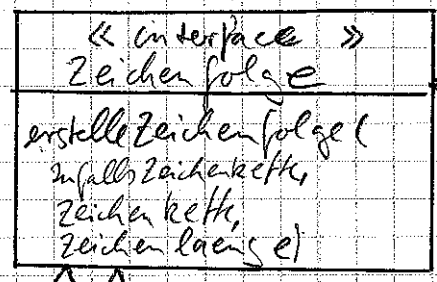 « interface »
Zeichenfolge
erstelleZeichenfolge(
zufallsZeichenkette,
zeichenkette,
zeichenlaenge)